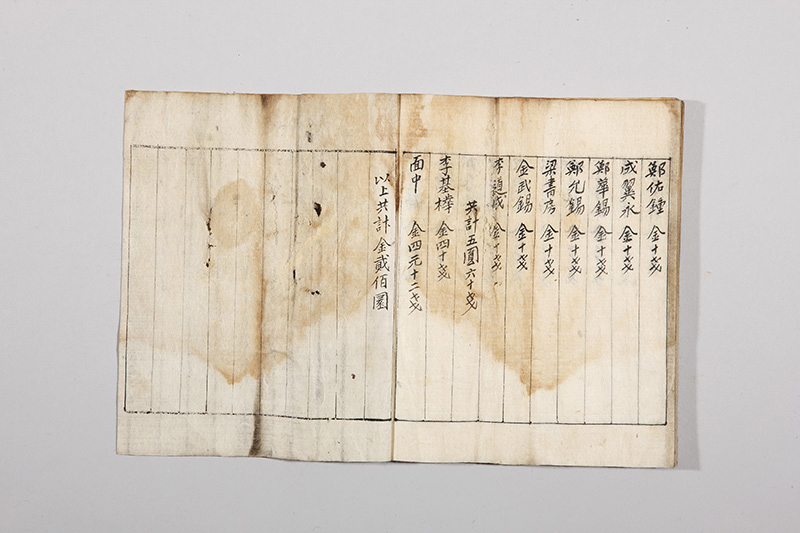 鄭佑鍾 金十戔
成翼永 金十戔
鄭華錫 金十戔
鄭允錫 金十戔
梁書房 金十戔
金武錫 金十戔
李道成 金十戔
共計五圓六十戔
李基㯙 金四十戔
面中 金四元十二戔
以上共計金貳佰圜